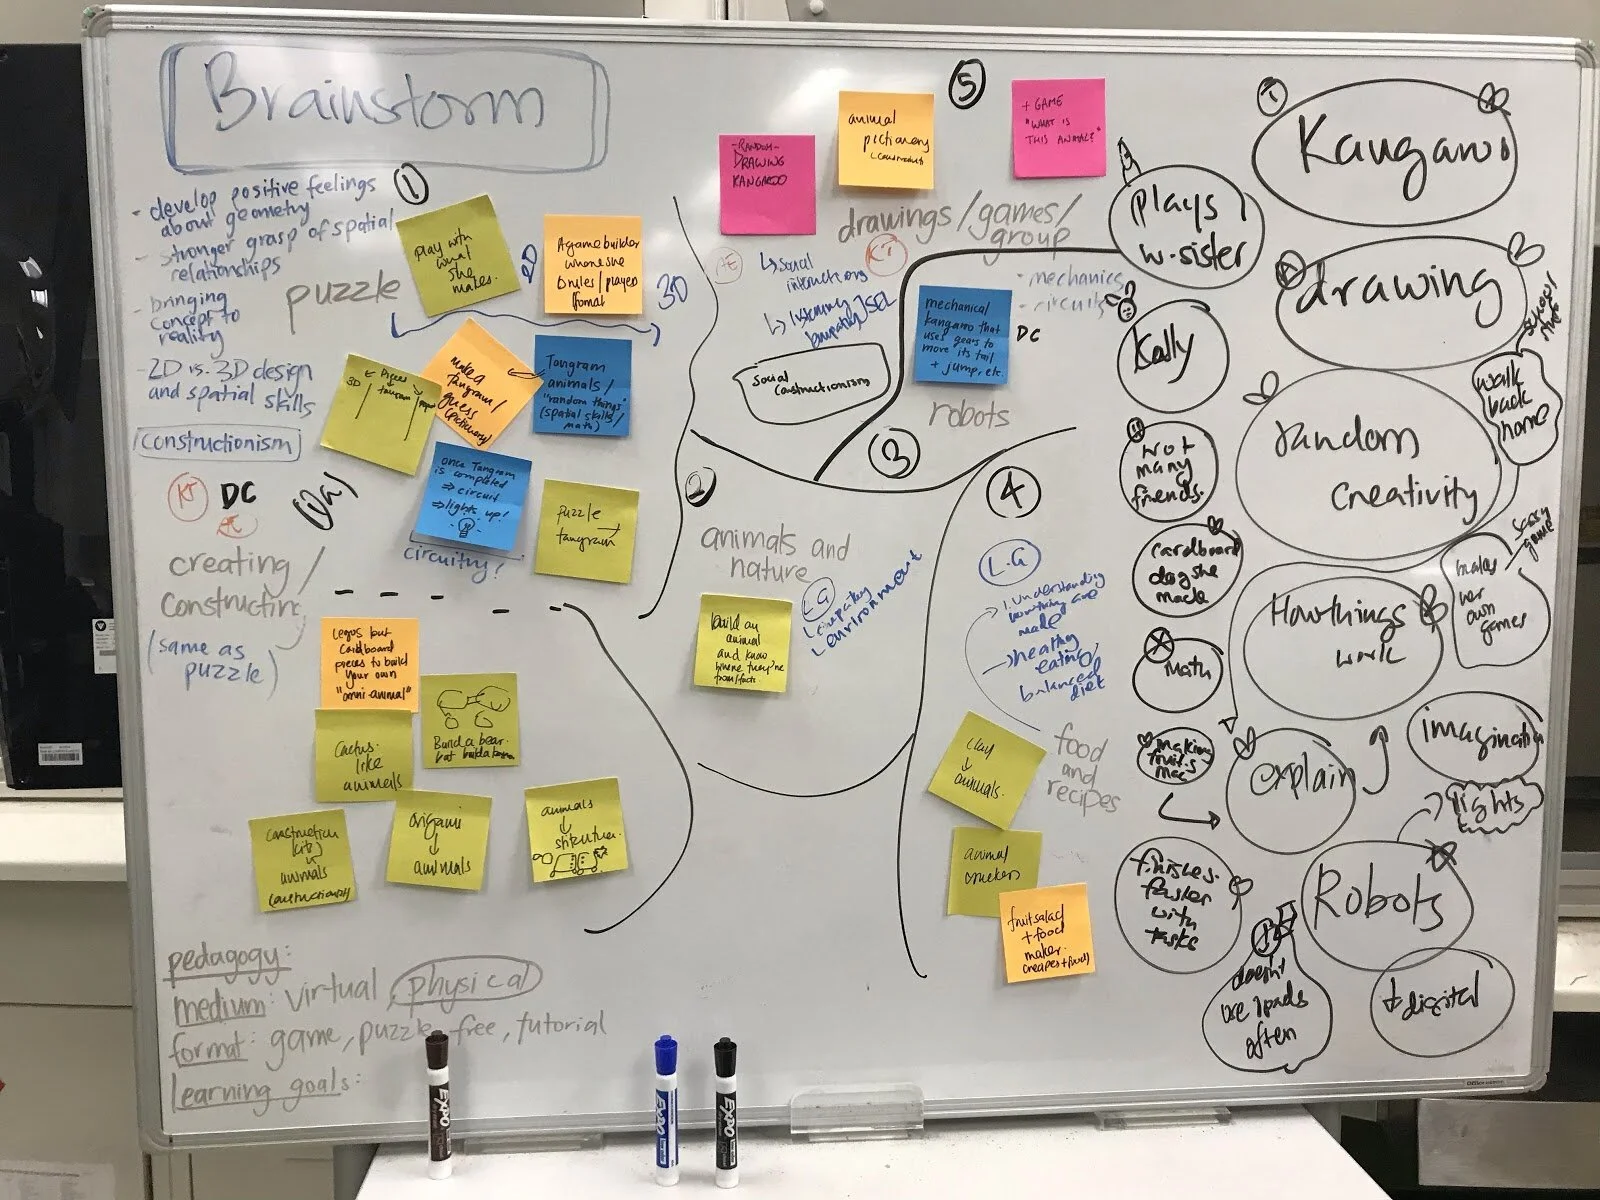 Brainstorm
- develop positive feelings
about geometry
- stronger grasp of spatial
relationships
- bringing
concept to
reality
- 2D vs. 3D design
and spatial skills
constructionism
DC
creating/
constructing
(same as
puzzle)
1
puzzle
play with
what
she
makes.
2D
A game builder
where she
rules/player
format
3D
3D
Pieces
tangram
make a
Tangram/
guess
(pictionary)
Tangram
animals/
"random things"
(spatial skills/
math)
once Tangram
is completed
⇒ circuit
⇒ lights up!
circuitry!
puzzle
tangram
(1a)
Legos but
cardboard
pieces to build
your own
"omni-animal"
Cactus-
like
animals
Build a bear.
but build a
construction
kits
animals
origami
↓
animals
animals
↓
pedagogy:
medium: virtual, physical
format: game, puzzle, free, tutorial
learning goals:
5
-RANDOM-
DRAWING
KANGAROO
animal
pictionary
+ GAME
"WHAT IS
THIS ANIMAL?"
drawings/games/
group
↳ social
interactions
↳ listening
empathy
SEL
social
constructionism
- mechanics
- circuits
mechanical
kangaroo that
uses gears to
move its tail
+ jump, etc.
DC
robots
3
2
animals and
nature
LG
empathy
environment
build an
animal
and know
where they're
from/facts.
4
L.G
1. Understanding
how things are
made
→ healthy
eating/
balanced
diet
food
and
recipes
clay
↓
animals.
animal
crackers
fruit salad
+ food
maker.
(recipes + food)
plays
w. sister
Kelly
not
many
friends.
cardboard
dog she
made
math
making
fruit
finishes
faster
with
tasks
doesn't
use ipads
often
Kangaroo
drawing
random
creativity
walk
back
home
How things
work
makes
her
own
games
explain
imagination
lights
Robots
+ digital
EXPO
EXPO
EXPO